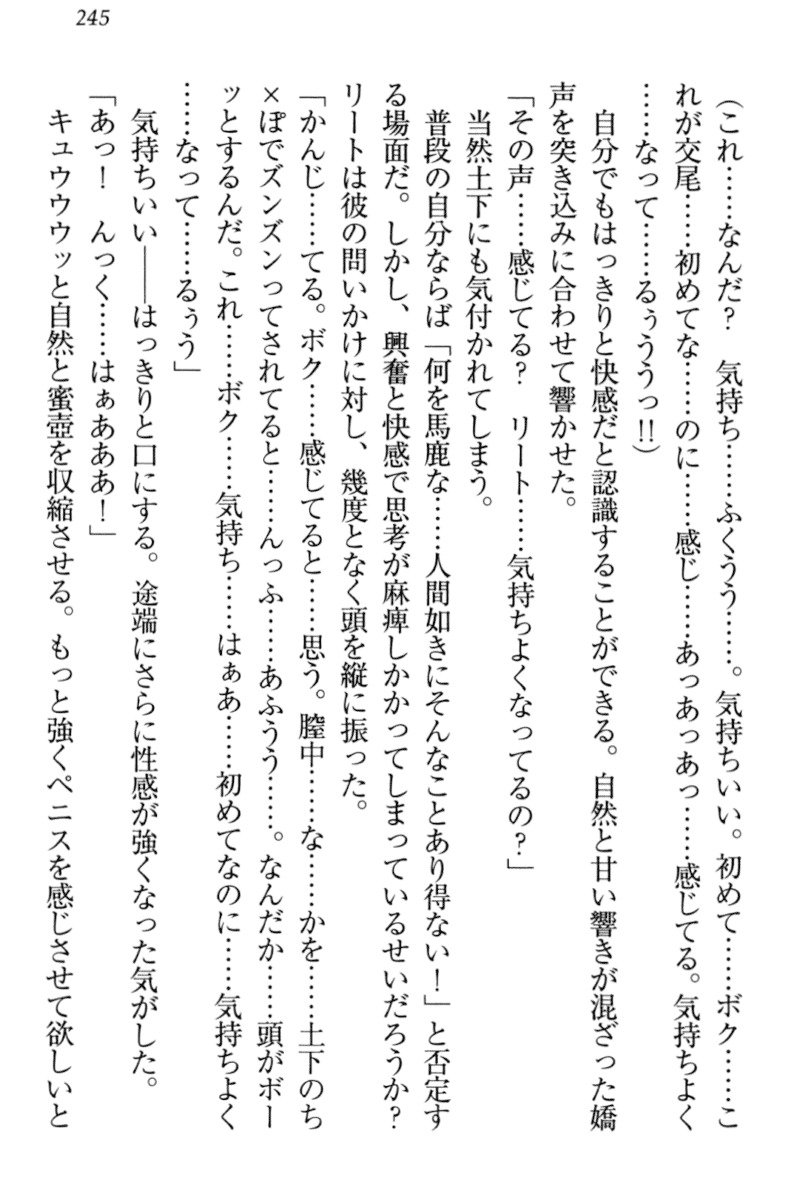 245
(これ……なんだ?　気持ち……ふくうう……。気持ちいい。初めて……ボク……こ
れが交尾……初めてな……のに……感じ……あっあっあっ……感じてる。気持ちよく
……なって……るぅううっ!!)
　自分でもはっきりと快感だと認識することができる。自然と甘い響きが混ざった嬌
声を突き込みに合わせて響かせた。
「その声……感じてる?　リート……気持ちよくなってるの?」
　当然土下にも気付かれてしまう。
　普段の自分ならば「何を馬鹿な……人間如きにそんなことあり得ない!」と否定す
る場面だ。しかし、興奮と快感で思考が麻痺しかかってしまっているせいだろうか?
リートは彼の問いかけに対し、幾度となく頭を縦に振った。
「かんじ……てる。ボク……感じてると……思う。膣中……な……かを……土下のち
×ぽでズンズンってされてると……んっふ……あふうう……。なんだか……頭がボー
ッとするんだ。これ……ボク……気持ち……はぁあ……初めてなのに……気持ちよく
……なって……るぅう」
　気持ちいい――はっきりと口にする。途端にさらに性感が強くなった気がした。
「あっ!　んっく……はぁあああ!」
　キュウウウッと自然と蜜壺を収縮させる。もっと強くペニスを感じさせて欲しいと